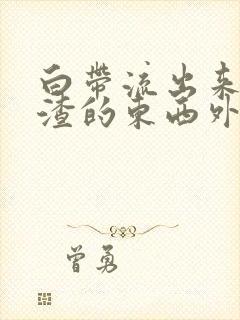 白带流出来
渣的东西外
曾勇